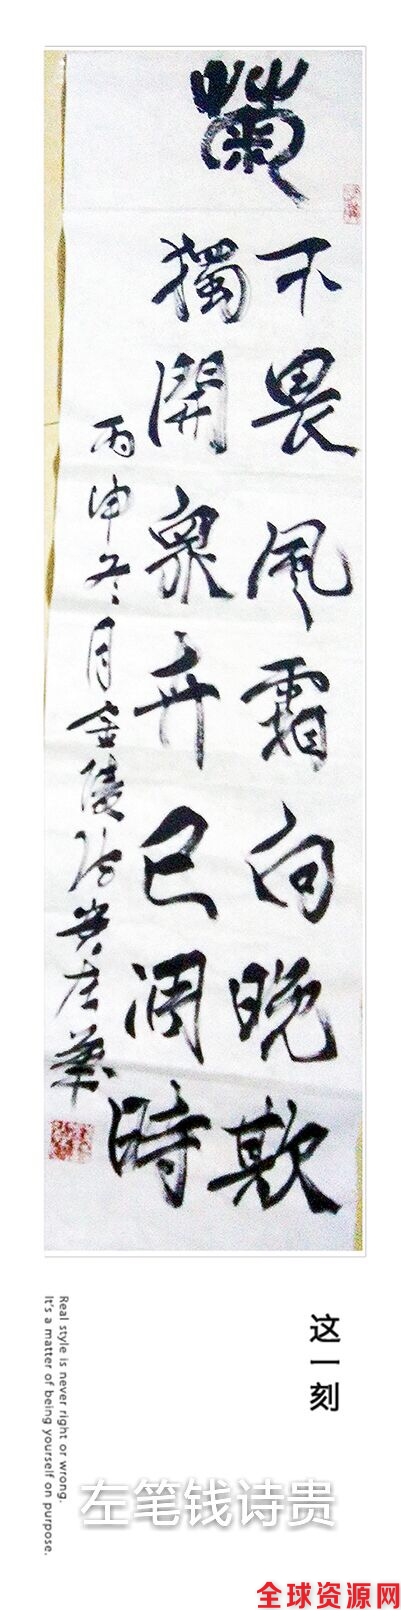 菊
不畏風霜向晚欺
獨開衆卉已凋時
丙申冬月金陵诗贵左筆
这一刻
Real style is never right or wrong.
It's a matter of being yourself on purpose.
左笔钱诗贵
全球资源网